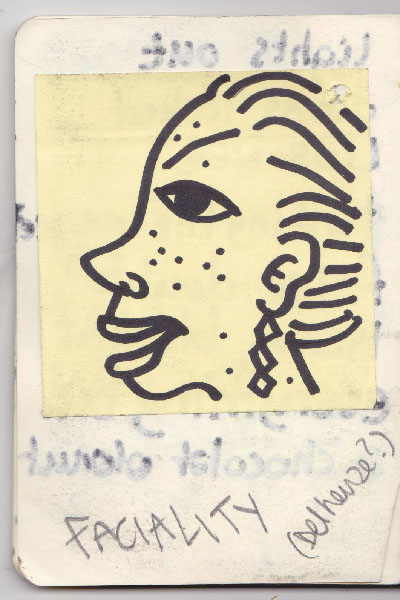 Lights out
chocolat donut
FACIALITY
(Delheuze?)